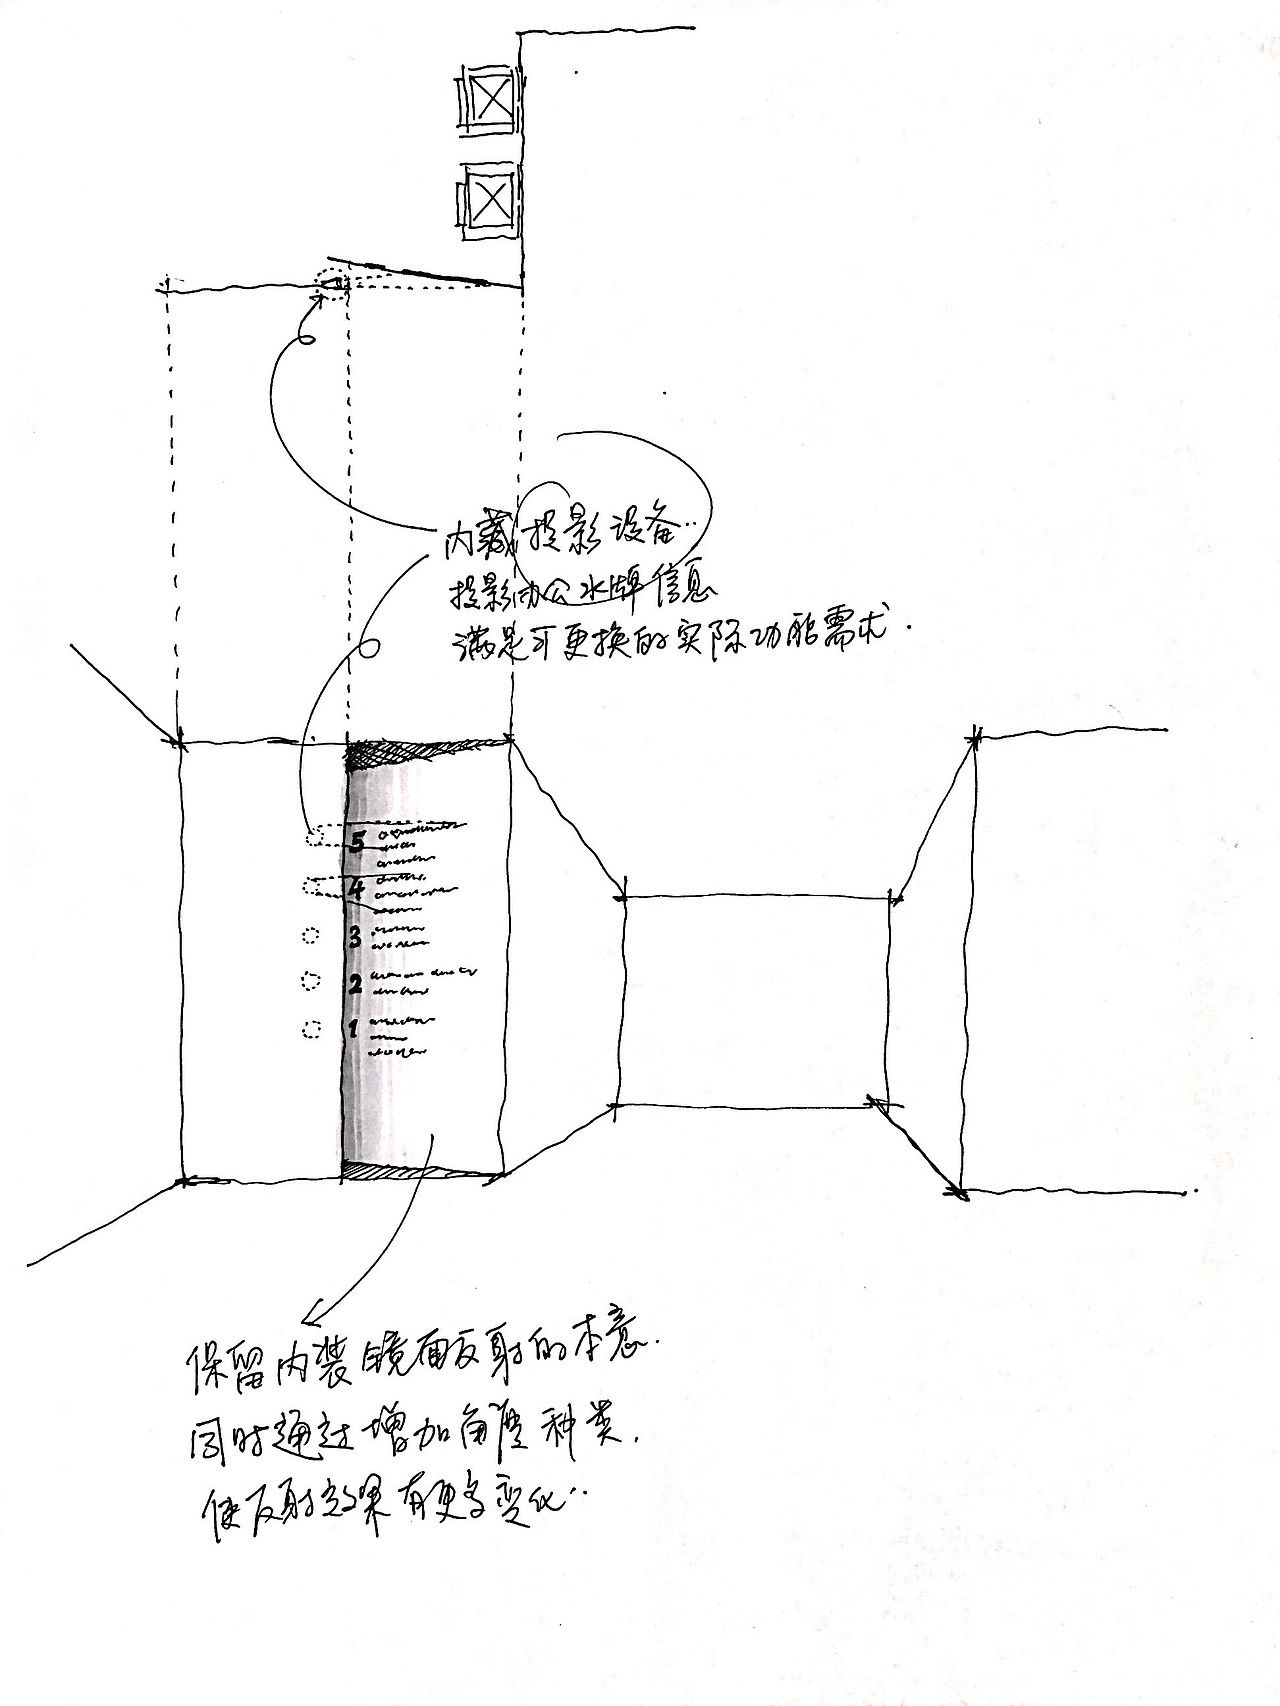 内藏投影设备..
投影办公水牌信息
满足可更换的实际功能需求.
5
4
3
2
1
保留内装镜面反射的本意.
同时通过增加角度种类.
使反射效果有更多变化..